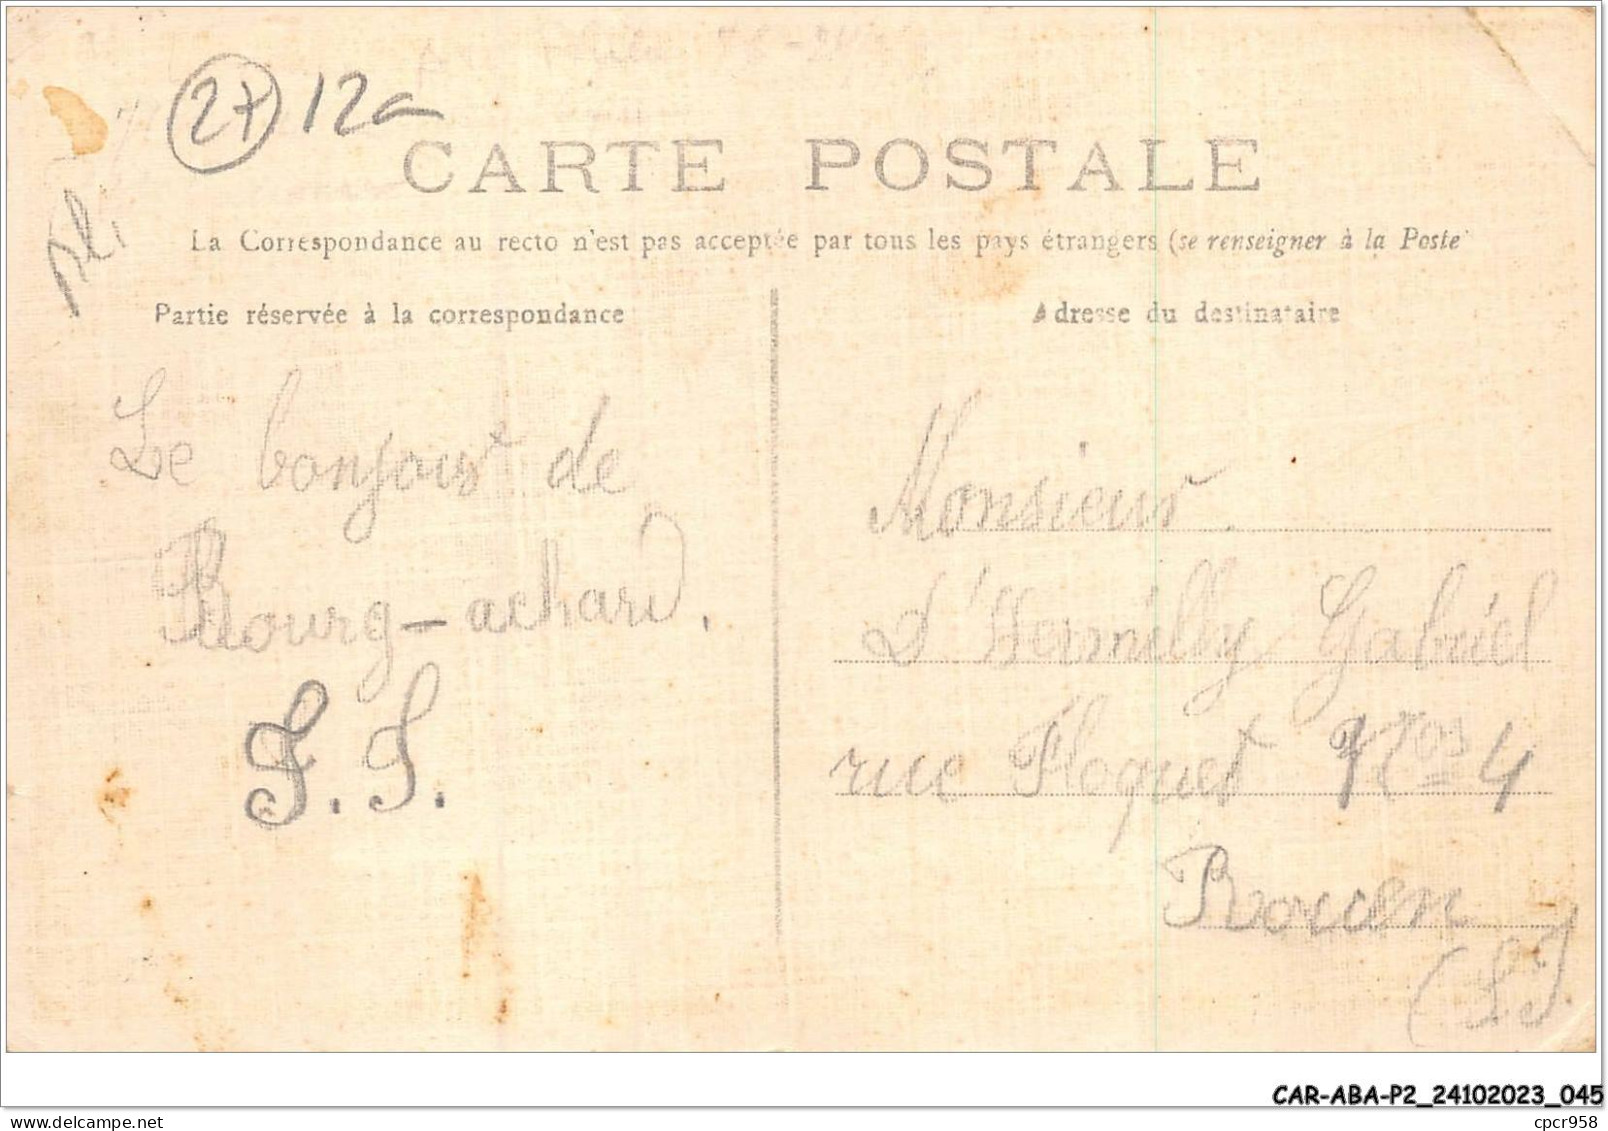 27 12a
CARTE POSTALE
pli
La Correspondance au recto n'est pas acceptée par tous les pays étrangers (se renseigner à la Poste
Partie réservée à la correspondance
Adresse du destinataire
Le bonjour de
Bourg-achard.
Monsieur
D'Hermilly Gabriel
rue Floquet Nos 4
Rouen
(S.I
CAR-ABA-P2_24102023_045
cpcr958